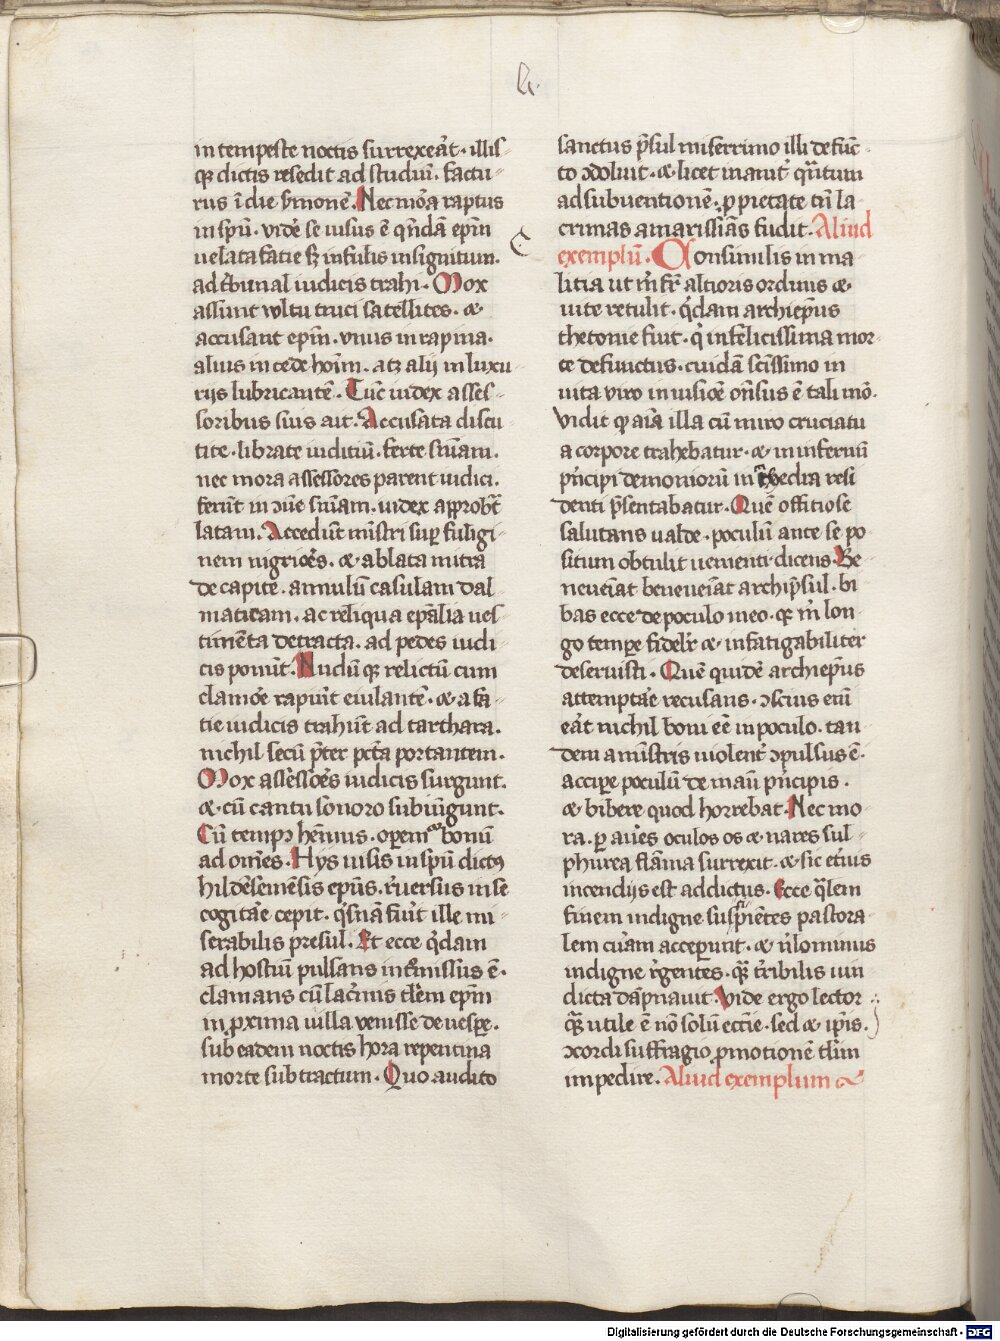 li.
in tempeste noctis surrexeat̉. illis⸗
qꝫ dictis resedit ad studiũ. factu⸗
rus ĩ die s̉monẽ. Nec mo̾a raptus
in sp̃u. vide̾ se iusus ẽ qñdã ep̃m
uelata facie sꝫ infulis insignitum.
ad t̾bunal iudicis trahi. Mox
assunt vvltu truci satellites. ⁊
accusant ep̃m. vnus in rapina.
alius in cede hoĩm. atꝫ alij in luxu
rijs lubricantẽ. Tũc iudex asses⸗
soribus suis ait. Accusata discu⸗
tite. librate iuditiũ. ferte sñiam.
nec mora assessores parent iudici.
ferũt in ꝯũe sñiam. iudex approbꝫ
latam. Accedũt mĩstri suꝑ fuligi⸗
nem nigrio̾es. ⁊ ablata mitra
de capite. annulũ casulam dal
maticam. ac reliqua ep̃alia ues⸗
timẽta detracta. ad pedes iudi⸗
cis ponũt. Nudũ qꝫ relictũ cum
clamo̾e rapiũt eiulantẽ. ⁊ a fa⸗
cie iudicis trahũt ad tarthara.
nichil secũ p̾ter pcc̃a portantem.
Mox assesso̾es iudicis surgunt.
⁊ cũ cantu sonoro subiũgunt.
Cũ tempꝯ hẽmus. operem̃ bonũ
ad om̃es. Hys uisis in sp̃u dictꝯ
hildẽsemẽsis ep̃us. r̾uersus in se
cogita̾e cepit. q̾snã fũit ille mi⸗
serabilis presul. Et ecce q̾dam
ad hostiũ pulsans int̾missus ẽ.
clamans cũ lac̾mis tl̾em ep̃m
in ꝓxima uilla venisse de uesꝑe.
sub eadem noctis hora repentina
morte subtractum. Quo audito
sanctus p̾sul miserrimo illi defũc⸗
to ꝯdoluit. ⁊ licet inaniꝉ q̾tum
ad subuentionẽ. ꝓ pietate tñ la⸗
crimas amarissĩas fudit. Aliud
exemplũ. Consimilis in ma⸗
litia ut m̾ fr̾ altioris ordinis ⁊
uite retulit. q̾dam archiep̃us
thetonie fuit. q̾ infelicissima mor⸗
te defunctus. cuidã scĩssimo in
uita viro in uisiõe oñsus ẽ tali mõ.
Vidit qꝫ aĩa illa cũ miro cruciatu
a corpore trahebatur. ⁊ in infernũ
p̾ncipi demoniorũ in cathedra resi
denti p̾sentabatur. Quẽ offitiose
salutans ualde. poculũ ante se po⸗
situm obtulit uementi dicens. Be⸗
neueiat̉ beneueiat̉ archip̾sul. bi⸗
bas ecce de poculo meo. qꝫ m̾ lon⸗
go tempe fidelr̾ ⁊ infatigabiliter
deseruisti. Quẽ quidẽ archiep̃us
attempta̾e recusans. ꝯscius eñi
eat̉ nichil boni eẽ in poculo. tan⸗
dem a mĩstris uiolenꝉ ꝯpulsus ẽ.
accipe poculũ de manũ p̾ncipis.
⁊ bibere quod horrebat. Nec mo⸗
ra. ꝑ aures oculos os ⁊ nares sul⸗
phurea flãma surrexit. ⁊ sic et̾nis
incendijs est addictus. Ecce q̾lem
finem indigne suspientes pastora⸗
lem cur̃am acceꝑunt. ⁊ ñ lominus
indigne r̾gentes. q̾ t̾ribilis uin⸗
dicta dãpnauit. Vide ergo lector
q̾ utile ẽ nõ solũ ecc̃ie. sed ⁊ ip̃is.
ꝯcordi suffragio ꝓmotionẽ tl̾im
impedire. Aliud exemplum
Digitalisierung gefördert durch die Deutsche Forschungsgemeinschaft - DFG